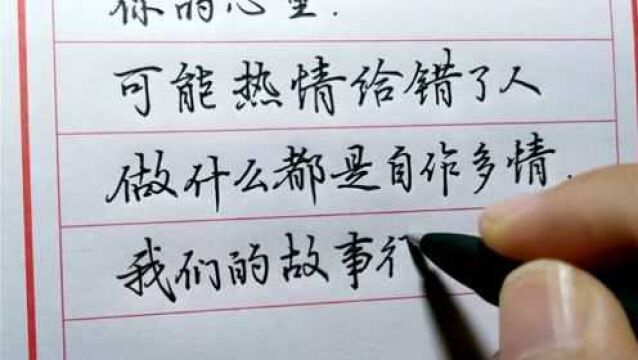 你的心里.
可能热情给错了人
做什么都是自作多情.
我们的故事